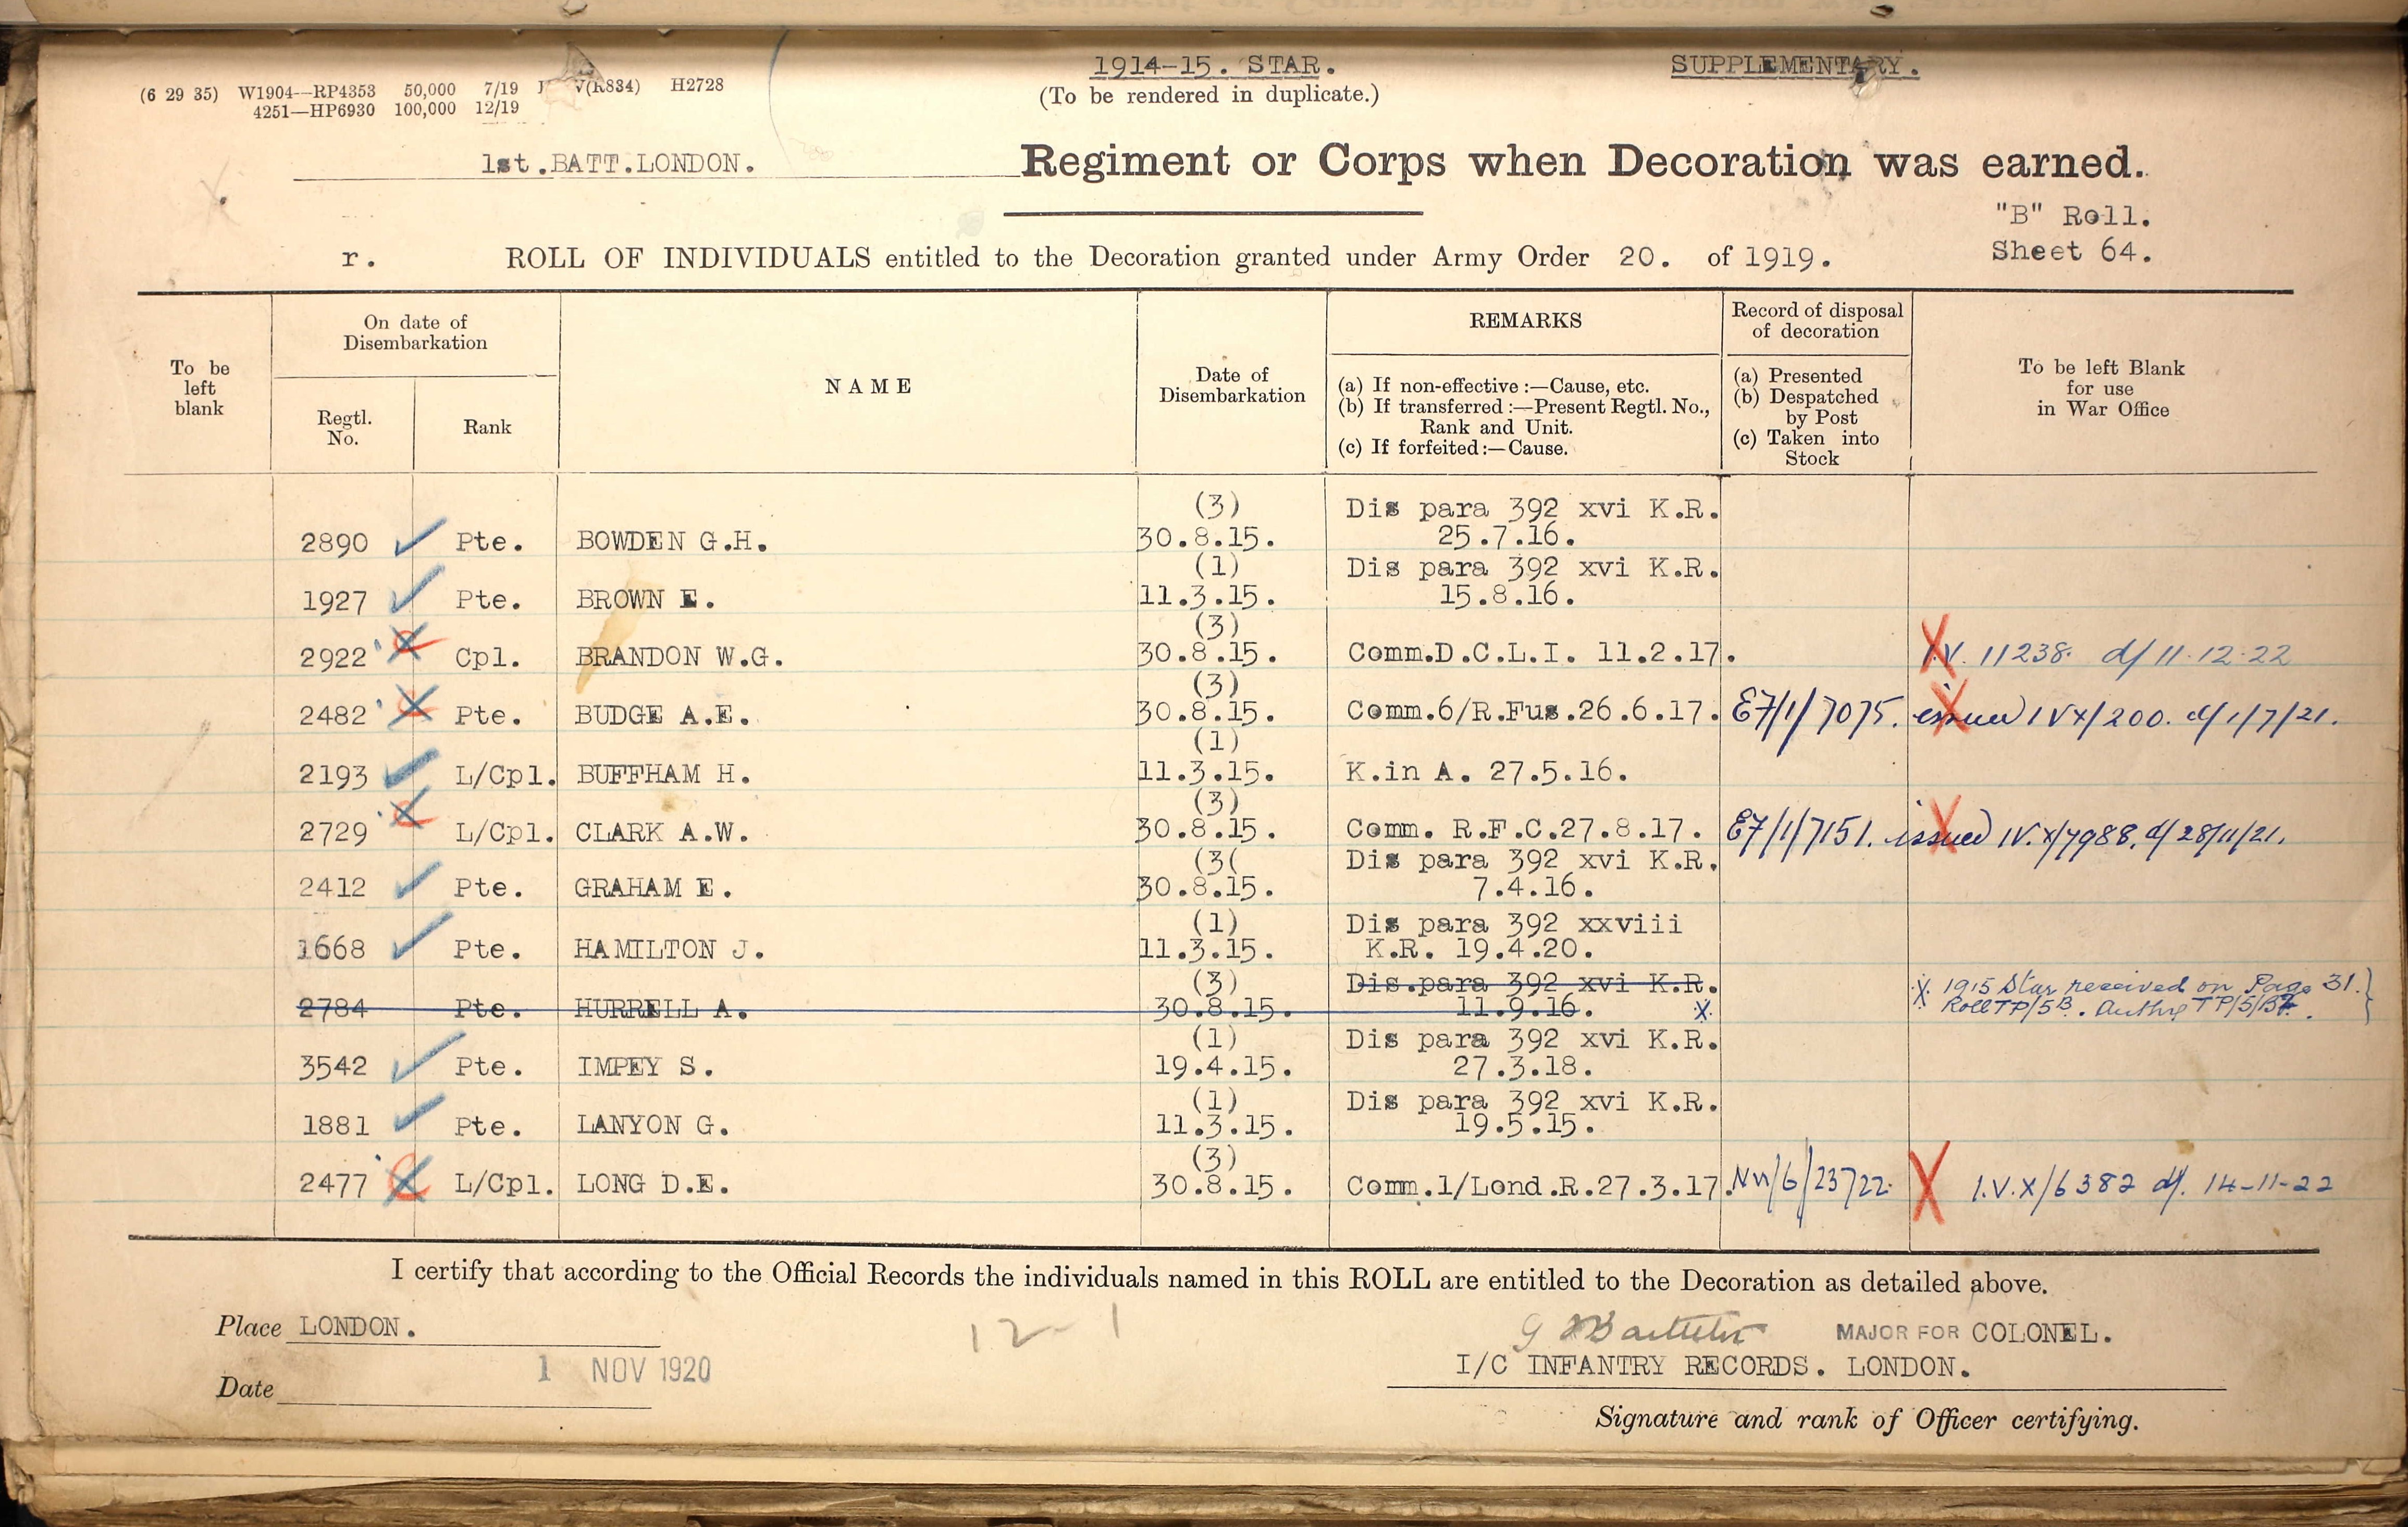 1914-15. STAR.
SUPPLEMENTARY.
(6 29 35) W1904—RP4353 50,000 7/19 V(R834) H2728
4251—HP6930 100,000 12/19
(To be rendered in duplicate.)
1st.BATT.LONDON. Regiment or Corps when Decoration was earned.
"B" Roll.
r. ROLL OF INDIVIDUALS entitled to the Decoration granted under Army Order 20. of 1919.
Sheet 64.
To be left blank
On date of Disembarkation
Regtl. No.
Rank
NAME
Date of Disembarkation
REMARKS
(a) If non-effective :—Cause, etc.
(b) If transferred :—Present Regtl. No., Rank and Unit.
(c) If forfeited :—Cause.
Record of disposal of decoration
(a) Presented
(b) Despatched by Post
(c) Taken into Stock
To be left Blank for use in War Office
(3) Dis para 392 xvi K.R.
2890 Pte. BOWDEN G.H. 30.8.15. 25.7.16.
(1) Dis para 392 xvi K.R.
1927 Pte. BROWN E. 11.3.15. 15.8.16.
(3)
2922 Cpl. BRANDON W.G. 30.8.15. Comm.D.C.L.I. 11.2.17. I.V. 11238. d/ 11.12.22
(3)
2482 Pte. BUDGE A.E. 30.8.15. Comm.6/R.Fus.26.6.17. E7/1/7075. issued IVX/200. d/1/7/21.
(1)
2193 L/Cpl. BUFFHAM H. 11.3.15. K.in A. 27.5.16.
(3)
2729 L/Cpl. CLARK A.W. 30.8.15. Comm. R.F.C.27.8.17. E7/1/7151. issued IV.X/7988. d/28/11/21.
(3( Dis para 392 xvi K.R.
2412 Pte. GRAHAM E. 30.8.15. 7.4.16.
(1) Dis para 392 xxviii
1668 Pte. HAMILTON J. 11.3.15. K.R. 19.4.20.
(3) Dis.para 392 xvi K.R. X 1915 Star received on Page 31.
2784 Pte. HURRELL A. 30.8.15. 11.9.16. X Roll TP/5B. Authy TP/5/B
(1) Dis para 392 xvi K.R.
3542 Pte. IMPEY S. 19.4.15. 27.3.18.
(1) Dis para 392 xvi K.R.
1881 Pte. LANYON G. 11.3.15. 19.5.15.
(3)
2477 L/Cpl. LONG D.E. 30.8.15. Comm.1/Lond.R.27.3.17. NW/6/23722. I.V.X/6382 d/. 14-11-22
I certify that according to the Official Records the individuals named in this ROLL are entitled to the Decoration as detailed above.
Place LONDON.
12-1
MAJOR FOR COLONEL.
1 NOV 1920
I/C INFANTRY RECORDS. LONDON.
Date
Signature and rank of Officer certifying.